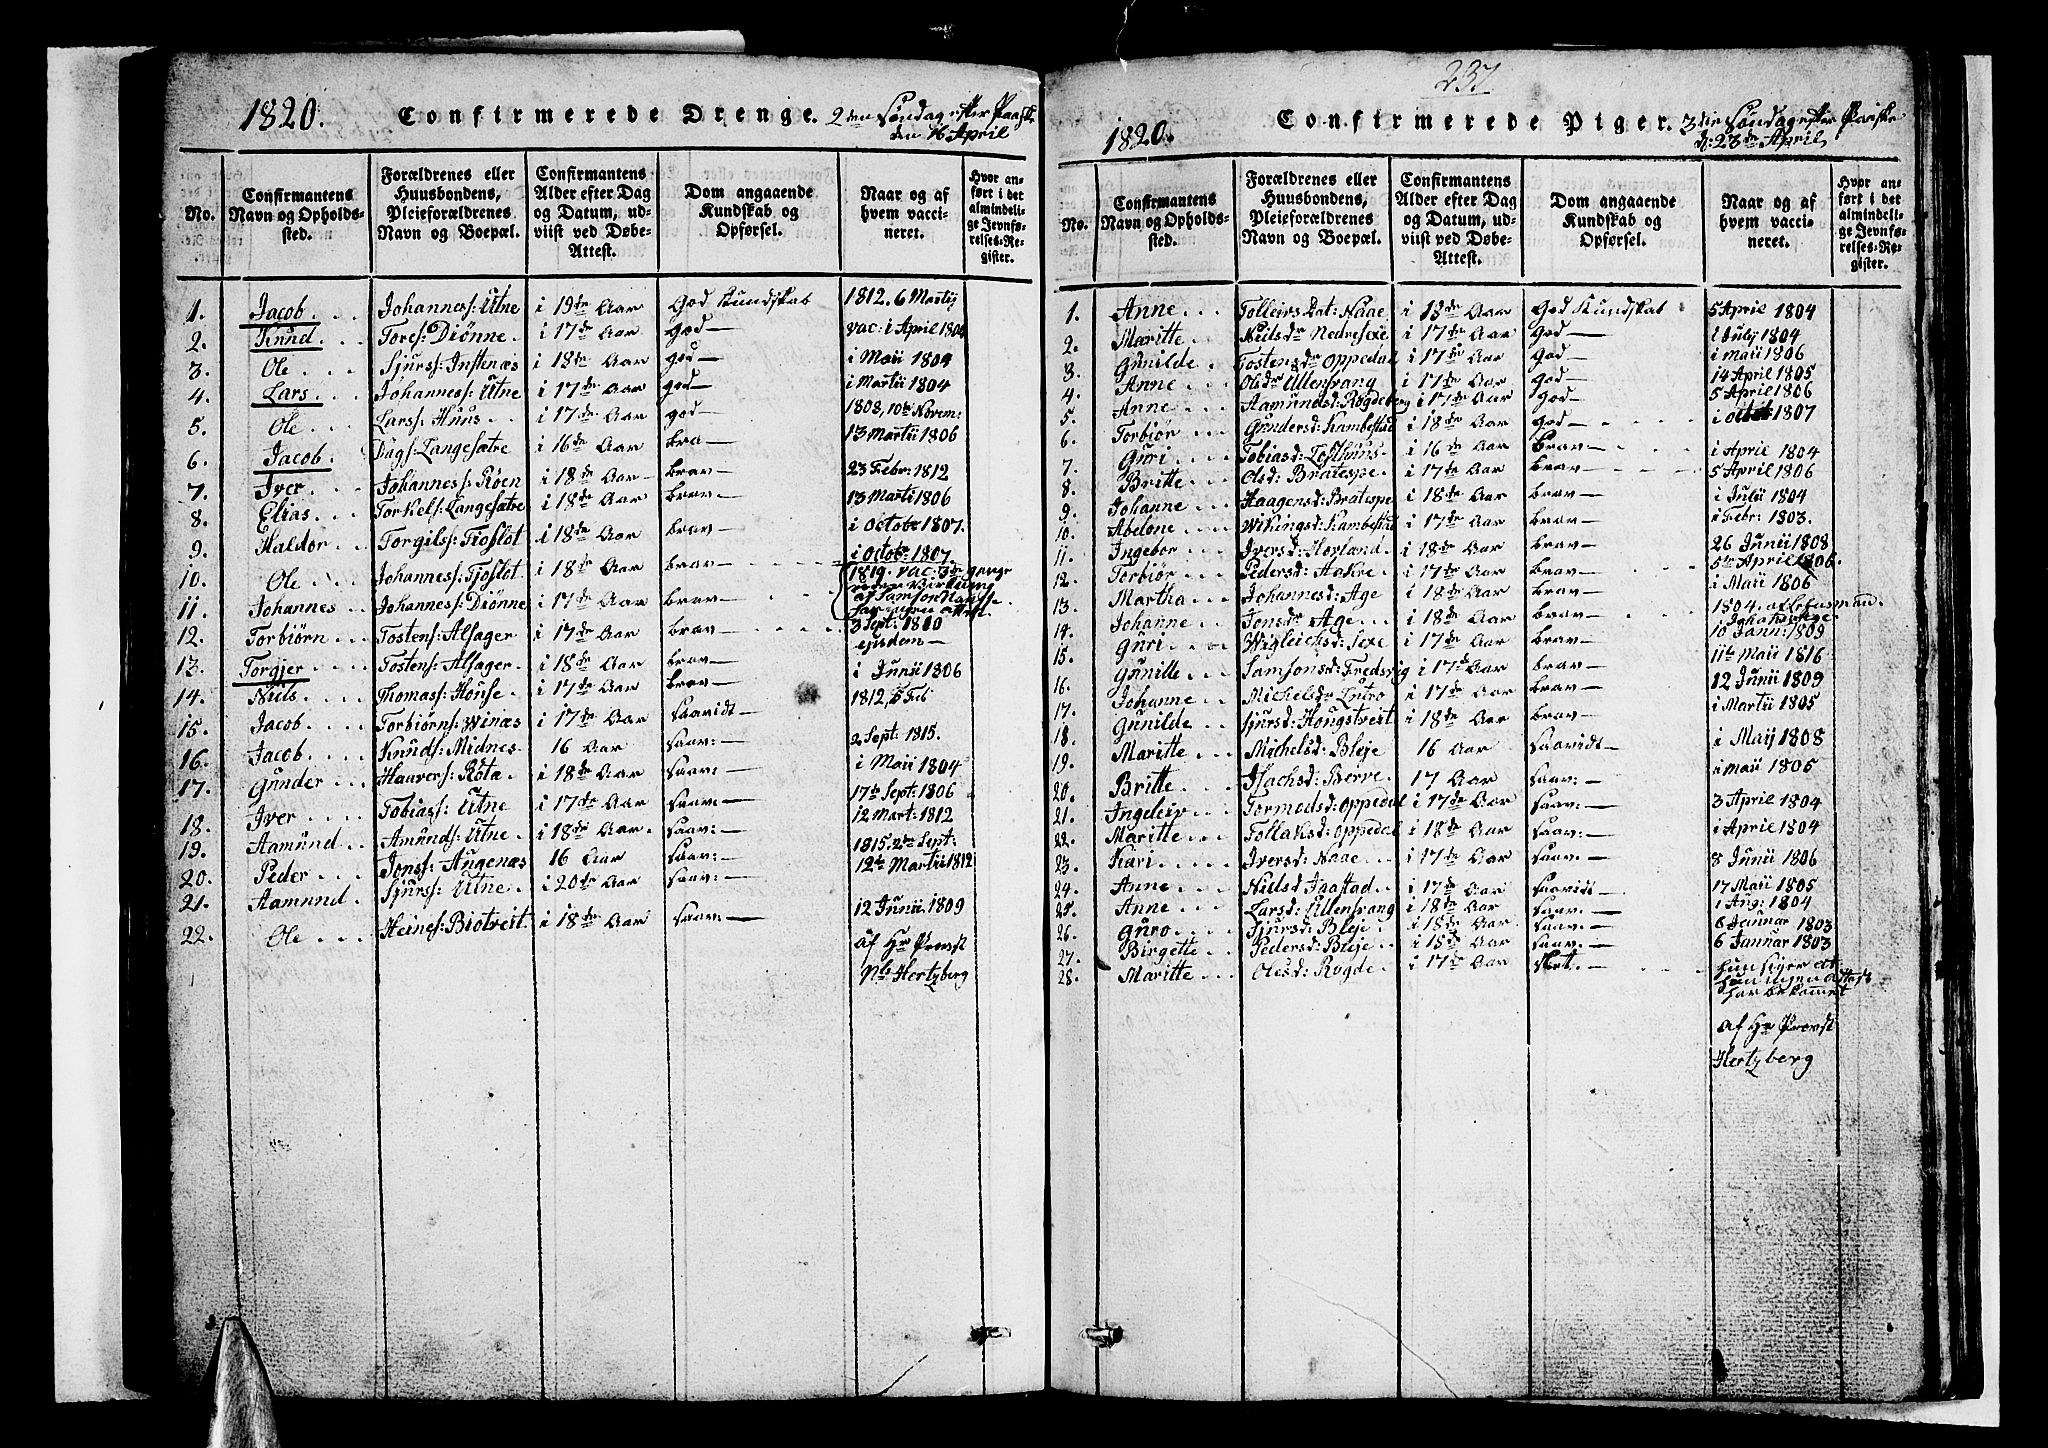 1820. Confirmerede Drenge. 2den Søndag efter Paaske
den 16 April
No. Confirmantens Navn og Opholdssted. Forældrenes eller Huusbondens, Pleieforældrenes Navn og Boepæl. Confirmantens Alder efter Dag og Datum, udviist ved Døbe-Attest. Dom angaaende Kundskab og Opførsel. Naar og af hvem vaccineret. Hvor anført i det almindelige Jevnførelses-Register.
1. Jacob Johanness: Utne i 19de Aar God Kundskab 1812. 6 Martij
2. Knud Tores: Diønne i 17de Aar god vac: i April 1804
3. Ole Sjurs: Instenæs i 18de Aar god i Maii 1804
4. Lars Johannes: Utne i 17de Aar god i Martii 1804
5. Ole Lars: Huus i 17de Aar god 1808, 10de Novem:
6. Jacob Dags: Langesætre i 16de Aar bra 13 Martii 1806
7. Iver Johannes: Røen i 18de Aar brav 23 Febr: 1812
8. Elias Torkels: Langesætre i 18de Aar brav 13 Marti 1806
9. Haldor Torgils: Tioflot i 18de Aar brav i Octobr 1807.
10. Ole Johannes: Tjoflot i 18de Aar brav i Octobr: 1807.
11. Johannes Johannes: Diønne i 17de Aar brav 1819. vac: 3de gange uden Virkning af Samson
12. Torbiørn Tostens: Alsager i 17de Aar brav 3 Sept: 1810
13. Torgjer Tostens: Alsager i 18de Aar brav ejusdem
14. Niels Thomas: House i 17de Aar brav i Junii 1806
15. Jacob Torbiørns: Winæs i 17de Aar saavidt 1812, 5 Feb
16. Jacob Knuds: Midnes 16 Aar saav: 2 Sept: 1815.
17. Gunder Haavers: Røta i 18de Aar saav: i Maii 1804
18. Iver Tobias: Utne i 17de Aar saav: 17de Sept: 1806
19. Aamund Amunds: Utne i 18de Aar saav: 12 Mart: 1812
20. Peder Jons: Augenæs 16 Aar saav: 1815. 2de Sept:
21. Aamund Sjurs: Utne i 20de Aar saav: 12te Martii 1812
22. Ole Heines: Biotveit i 18de Aar saav: 12 Junii 1809
af Hr Provst
Nls Hertzberg
237
1820. Confirmerede Piger. 3die Søndag efter Paaske
d: 23de April
No. Confirmantens Navn og Opholdssted. Forældrenes eller Huusbondens, Pleieforældrenes Navn og Boepæl. Confirmantens Alder efter Dag og Datum, udviist ved Døbe-Attest. Dom angaaende Kundskab og Opførsel. Naar og af hvem vaccineret. Hvor anført i det almindelige Jevnførelses-Register.
1. Anne Tolleirs Dat: Naae i 18de Aar God Kundskab 5 April 1804
2. Maritte Neilsdr Nedresexe i 17de Aar god i July 1804
3. Gunilde Tostensdr Oppedal i 17de Aar god i maii 1806
4. Anne Olsdr Ullensvang i 17de Aar god 14 April 1805
5. Anne Aamundsd: Rogdeberg i 17de Aar god 5 April 1806
6. Torbiør Gundersd: Kambestad i 18de Aar god i octob 1807
7. Guri Tobiasd: Lofthuus i 16de Aar Brav i April 1804
8. Britte Olsd: Bratespe i 17de Aar brav 5 April 1806
9. Johanne Haagensd: Bratespe i 18de Aar brav i Julii 1804
10. Abelone Wikingsd: Kambestad i 17de Aar brav i Febr: 1803.
11. Ingebor Iversd: Horland i 18de Aar brav 26 Junii 1808
12. Torbiør Pedersd: Aakre i 17de Aar brav 5te April 1806.
13. Martha Johannesd: Age i 18de Aar brav i Maii 1806
14. Johanne Jonsdr Age i 18de Aar brav 1804. af Lehnsmand
15. Guri Wigleichsd: Sexe i 17de Aar brav 10 Jann: 1809
16. Gunille Samsonsd: Fredsvig i 17de Aar brav 11te Maii 1816
17. Johanne Michelsdr Lutro i 17de Aar brav 12 Junii 1809
18. Gunilde Sjursd: Hougstveit i 18de Aar brav i Martii 1805
19. Maritte Michelsd: Bleje 16 Aar saavidt i Maij 1808
20. Britte Isachsd: Berve 17 Aar saav: i maii 1805
21. Ingeleiv Tormodsd: Oppedal i 17de Aar saav: 3 April 1804
22. Maritte Tollaksd: Oppedal i 18de Aar saav: i April 1804
23. Kari Iversd: Naae i 17de Aar saav: 8 Junii 1806
24. Anne Nielsd Jaastad i 17de Aar saavidt 17 Maii 1805
25. Anne Larsd: Ullensvang i 18de Aar saav: i Aug: 1804
26. Guro Sjursd: Bleje i 18de Aar saav: 6 Januar 1803
27. Birgette Pedersd: Bleje i 18de Aar saav: 6 Januar 1803
28. Maritte Olesd: Rogde i 17de Aar slet. hun siger at
hun ingen attest
har bekommet
af Hr Provst
Hertzberg